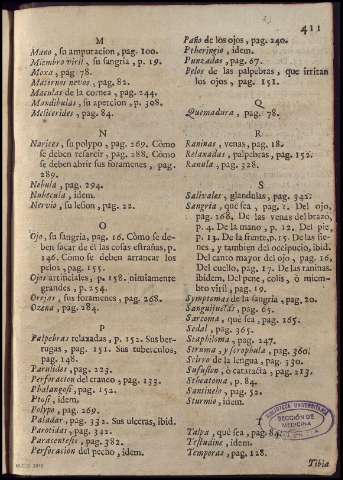 411
M
Mano, su amputacion, pag. 100.
Miembro viril, su sangria, p. 19.
Moxa, pag. 78.
Maternos nevos, pag. 82.
Maculas de la cornea, pag. 244.
Mandibulas, su apercion, p. 308.
Meliceridos, pag. 84.
N
Narices, su polypo, pag. 269. Còmo
se deben resarcir, pag. 288. Còmo
se deben abrir sus foramenes, pag.
289.
Nebula, pag. 294.
Nubecula, idem.
Nervio, su lesion, pag. 22.
O
Ojo, su sangria, pag. 16. Còmo se de-
ben sacar de èl las cosas estrañas, p.
146. Como se deben arrancar los
pelos, pag. 155.
Ojos artificiales, p. 158. nimiamente
grandes, p. 254.
Orejas, sus foramenes, pag. 268.
Ozena, pag. 284.
P
Palpebras relaxadas, p. 152. Sus ber-
rugas, pag. 151. Sus tuberculos,
pag. 148.
Parulides, pag. 223.
Perforacion del craneo, pag. 133.
Phalangosi, pag. 152.
Ptosi, idem.
Polypo, pag. 269.
Paladar, pag. 332. Sus ulceras, ibid.
Parotidas, pag. 342.
Paracentesis, pag. 382.
Perforacion del pecho, idem.
Paño de los ojos, pag. 240.
Ptheringio, idem.
Punzadas, pag. 67.
Pelos de las palpebras, que irritan
los ojos, pag. 151.
Q
Quemadura, pag. 78.
R
Raninas, venas, pag. 18.
Relaxadas, palpebras, pag. 152.
Ranula, pag. 328.
S
Salivales, glandulas, pag. 342.
Sangria, què sea, pag. 1. Del ojo,
pag. 268. De las venas del brazo,
p. 4. De la mano, p. 12. Del pie,
p. 13. De la frente, p. 15. De las sie-
nes, y tambien del occipucio, ibid.
Del canto mayor del ojo, pag. 16,
Del cuello, pag. 17. De las raninas.
ibidem, Del pene, colis, ò miem-
bro viril, pag. 19.
Symptomas de la sangria, pag. 20.
Sanguijuelas, pag. 65.
Sarcoma, què sea, pag. 265.
Sedal, pag. 365.
Staphiloma, pag. 247.
Struma, y scrophula, pag. 360.
Scirro de la lengua, pag. 330.
Sufusion, ò cataracta, pag. 213.
Stheatoma, p. 84.
Santinelo, pag. 52.
Sturmio, idem.
T
Talpa, què sea, pag. 84.
Testudine, idem.
Temporas, pag. 128.
Tibia
BIBLIOTECA UNIVERSITARIA
SECCIÓN DE
MEDICINA